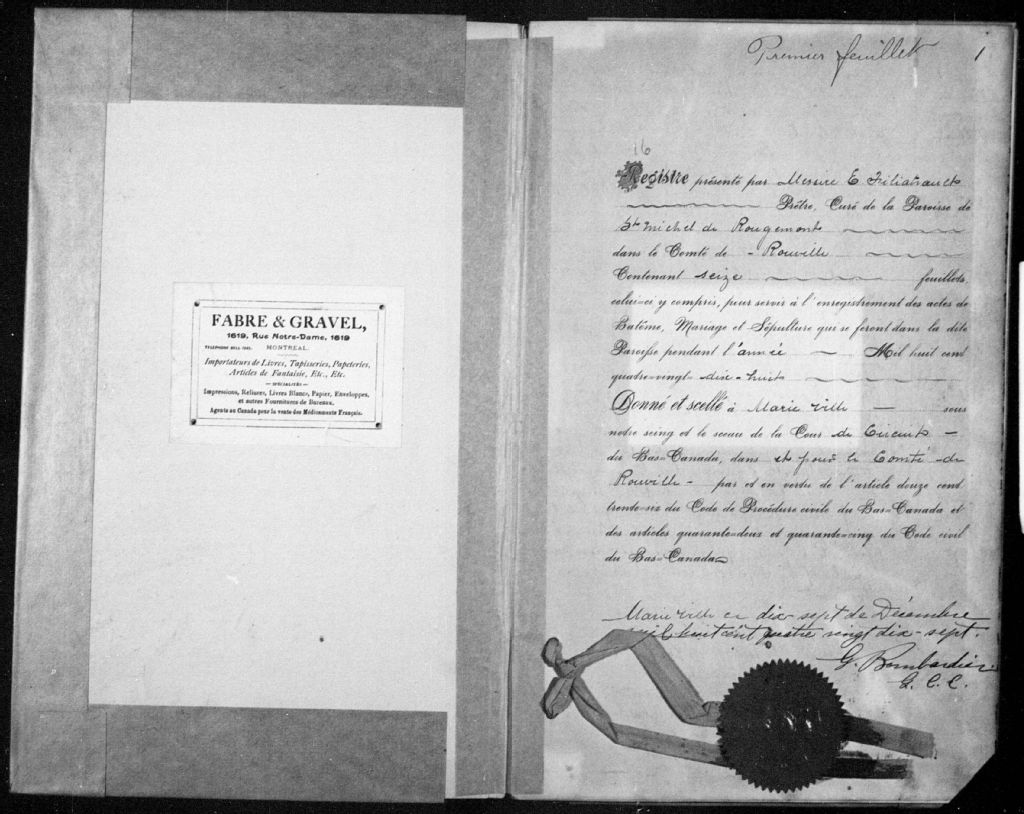 FABRE & GRAVEL,
1619, Rue Notre-Dame, 1619
MONTREAL.
Importateurs de Livres, Tapisseries, Papeteries,
Articles de Fantaisie, Etc., Etc.
— SPÉCIALITÉS —
Impressions, Reliures, Livres Blancs, Papier, Enveloppes,
et autres Fournitures de Bureaux.
Agents au Canada pour la vente des Médicaments Français.
Premier feuillet 1
16
Registre présenté par Messire E Filiatrault
Prêtre, Curé de la Paroisse de
St Michel de Rougemont
dans le Comté de - Rouville
Contenant seize feuillets,
celui-ci y compris, pour servir à l'enregistrement des actes de
Batême, Mariage et Sépulture qui se feront dans la dite
Paroisse pendant l'année — Mil huit cent
quatre-vingt dix-huit
Donné et scellé à Marieville — sous
notre seing et le sceau de la Cour de Circuit -
du Bas-Canada, dans et pour le Comté de
Rouville - par et en vertu de l'article douze cent
trente-six du Code de Procédure civile du Bas-Canada et
des articles quarante-deux et quarante-cinq du Code civil
du Bas-Canada
Marieville ce dix-sept de Décembre
mil huit cent quatre vingt dix-sept.
G. Bombardier
G. C. C.